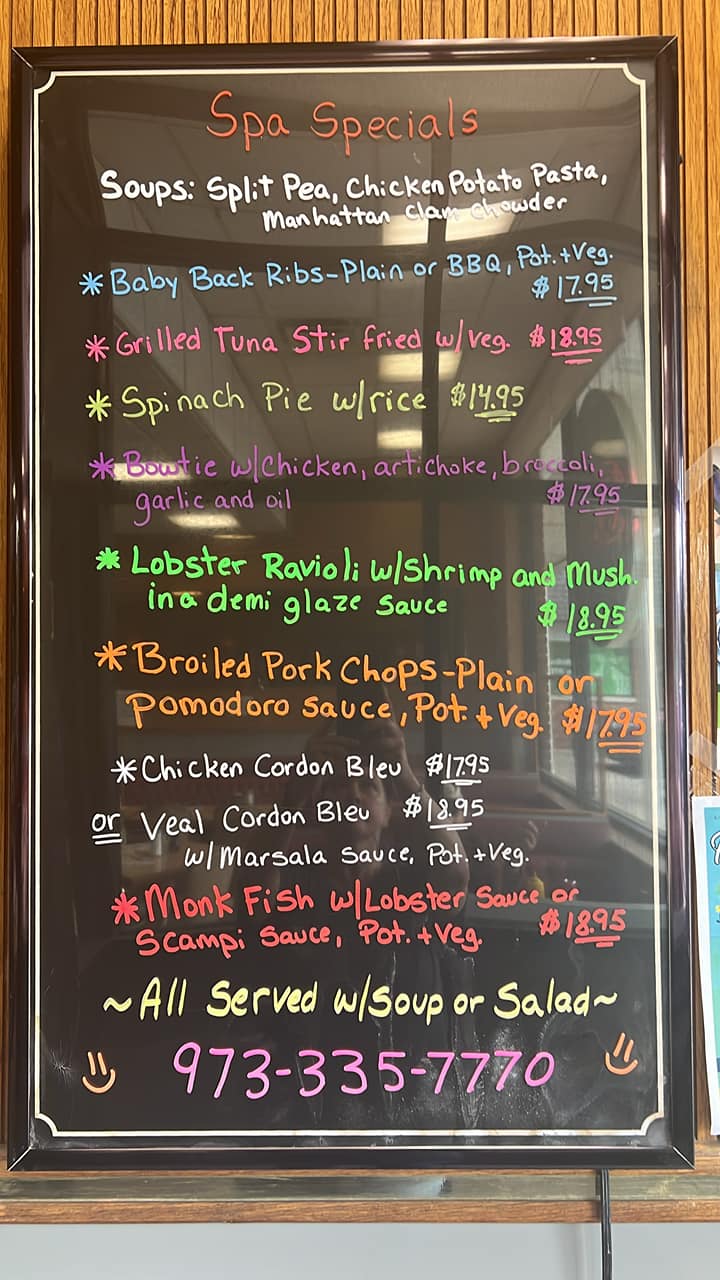 Spa Specials
Soups: Split Pea, Chicken Potato Pasta,
Manhattan Clam Chowder
* Baby Back Ribs-Plain or BBQ, Pot.+Veg.
$17.95
* Grilled Tuna Stir fried w/veg. $18.95
* Spinach Pie w/rice $14.95
* Bowtie w/Chicken, artichoke, broccoli,
garlic and oil $17.95
* Lobster Ravioli w/Shrimp and Mush.
in a demi glaze sauce $18.95
* Broiled Pork Chops-Plain or
Pomodoro sauce, Pot. + Veg. $17.95
* Chicken Cordon Bleu $17.95
or Veal Cordon Bleu $18.95
w/Marsala Sauce, Pot.+Veg.
* Monk Fish w/Lobster Sauce or
Scampi Sauce, Pot.+Veg. $18.95
~All Served w/Soup or Salad~
973-335-7770